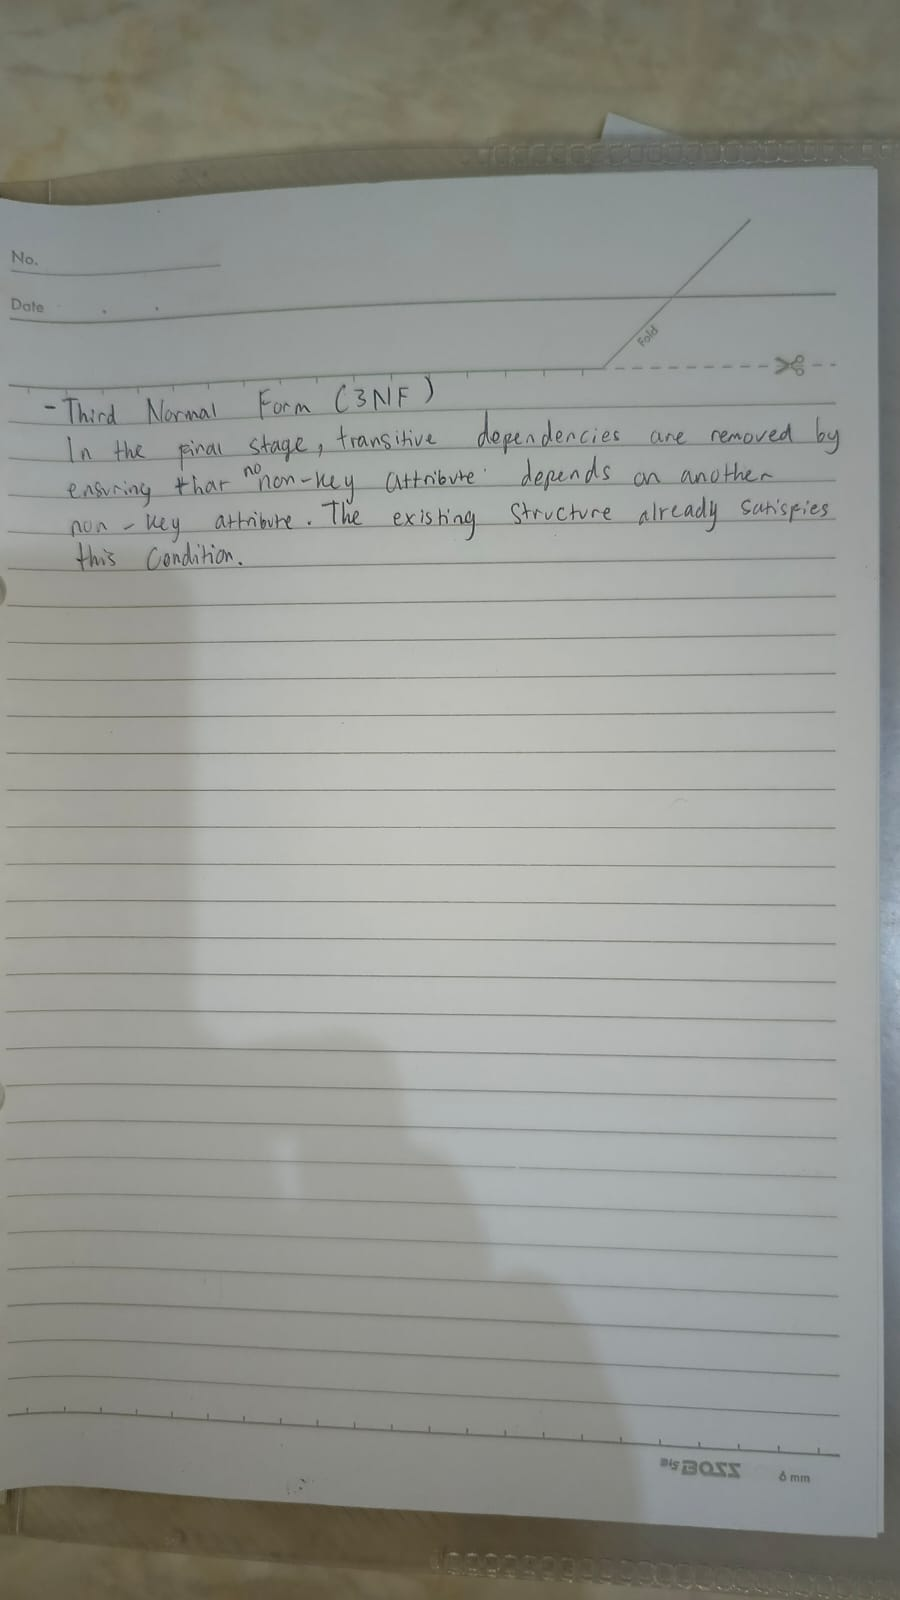 No.
Date
Fold
- Third Normal Form (3NF)
In the final stage, transitive dependencies are removed by
ensuring that no non-key attribute depends on another
non-key attribute. The existing structure already satisfies
this condition.
Big BOSS 6 mm